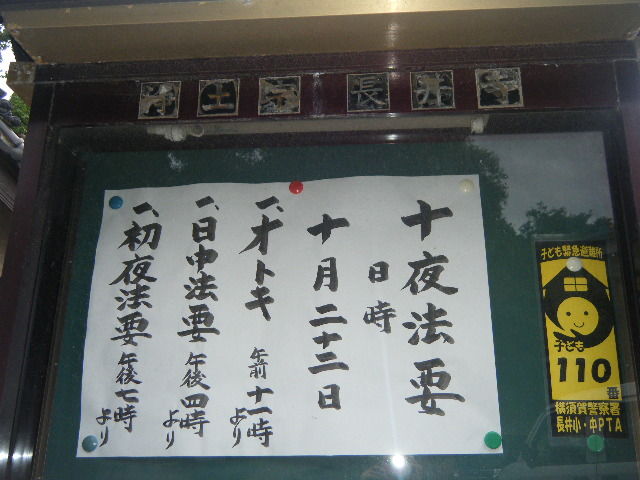 浄土宗 長井寺
十夜法要
日時
十月二十二日
一、オトキ 午前十一時より
一、日中法要 午後四時より
一、初夜法要 午後七時より
子ども緊急避難所
子ども
110
番
横須賀警察署
長井小・中PTA